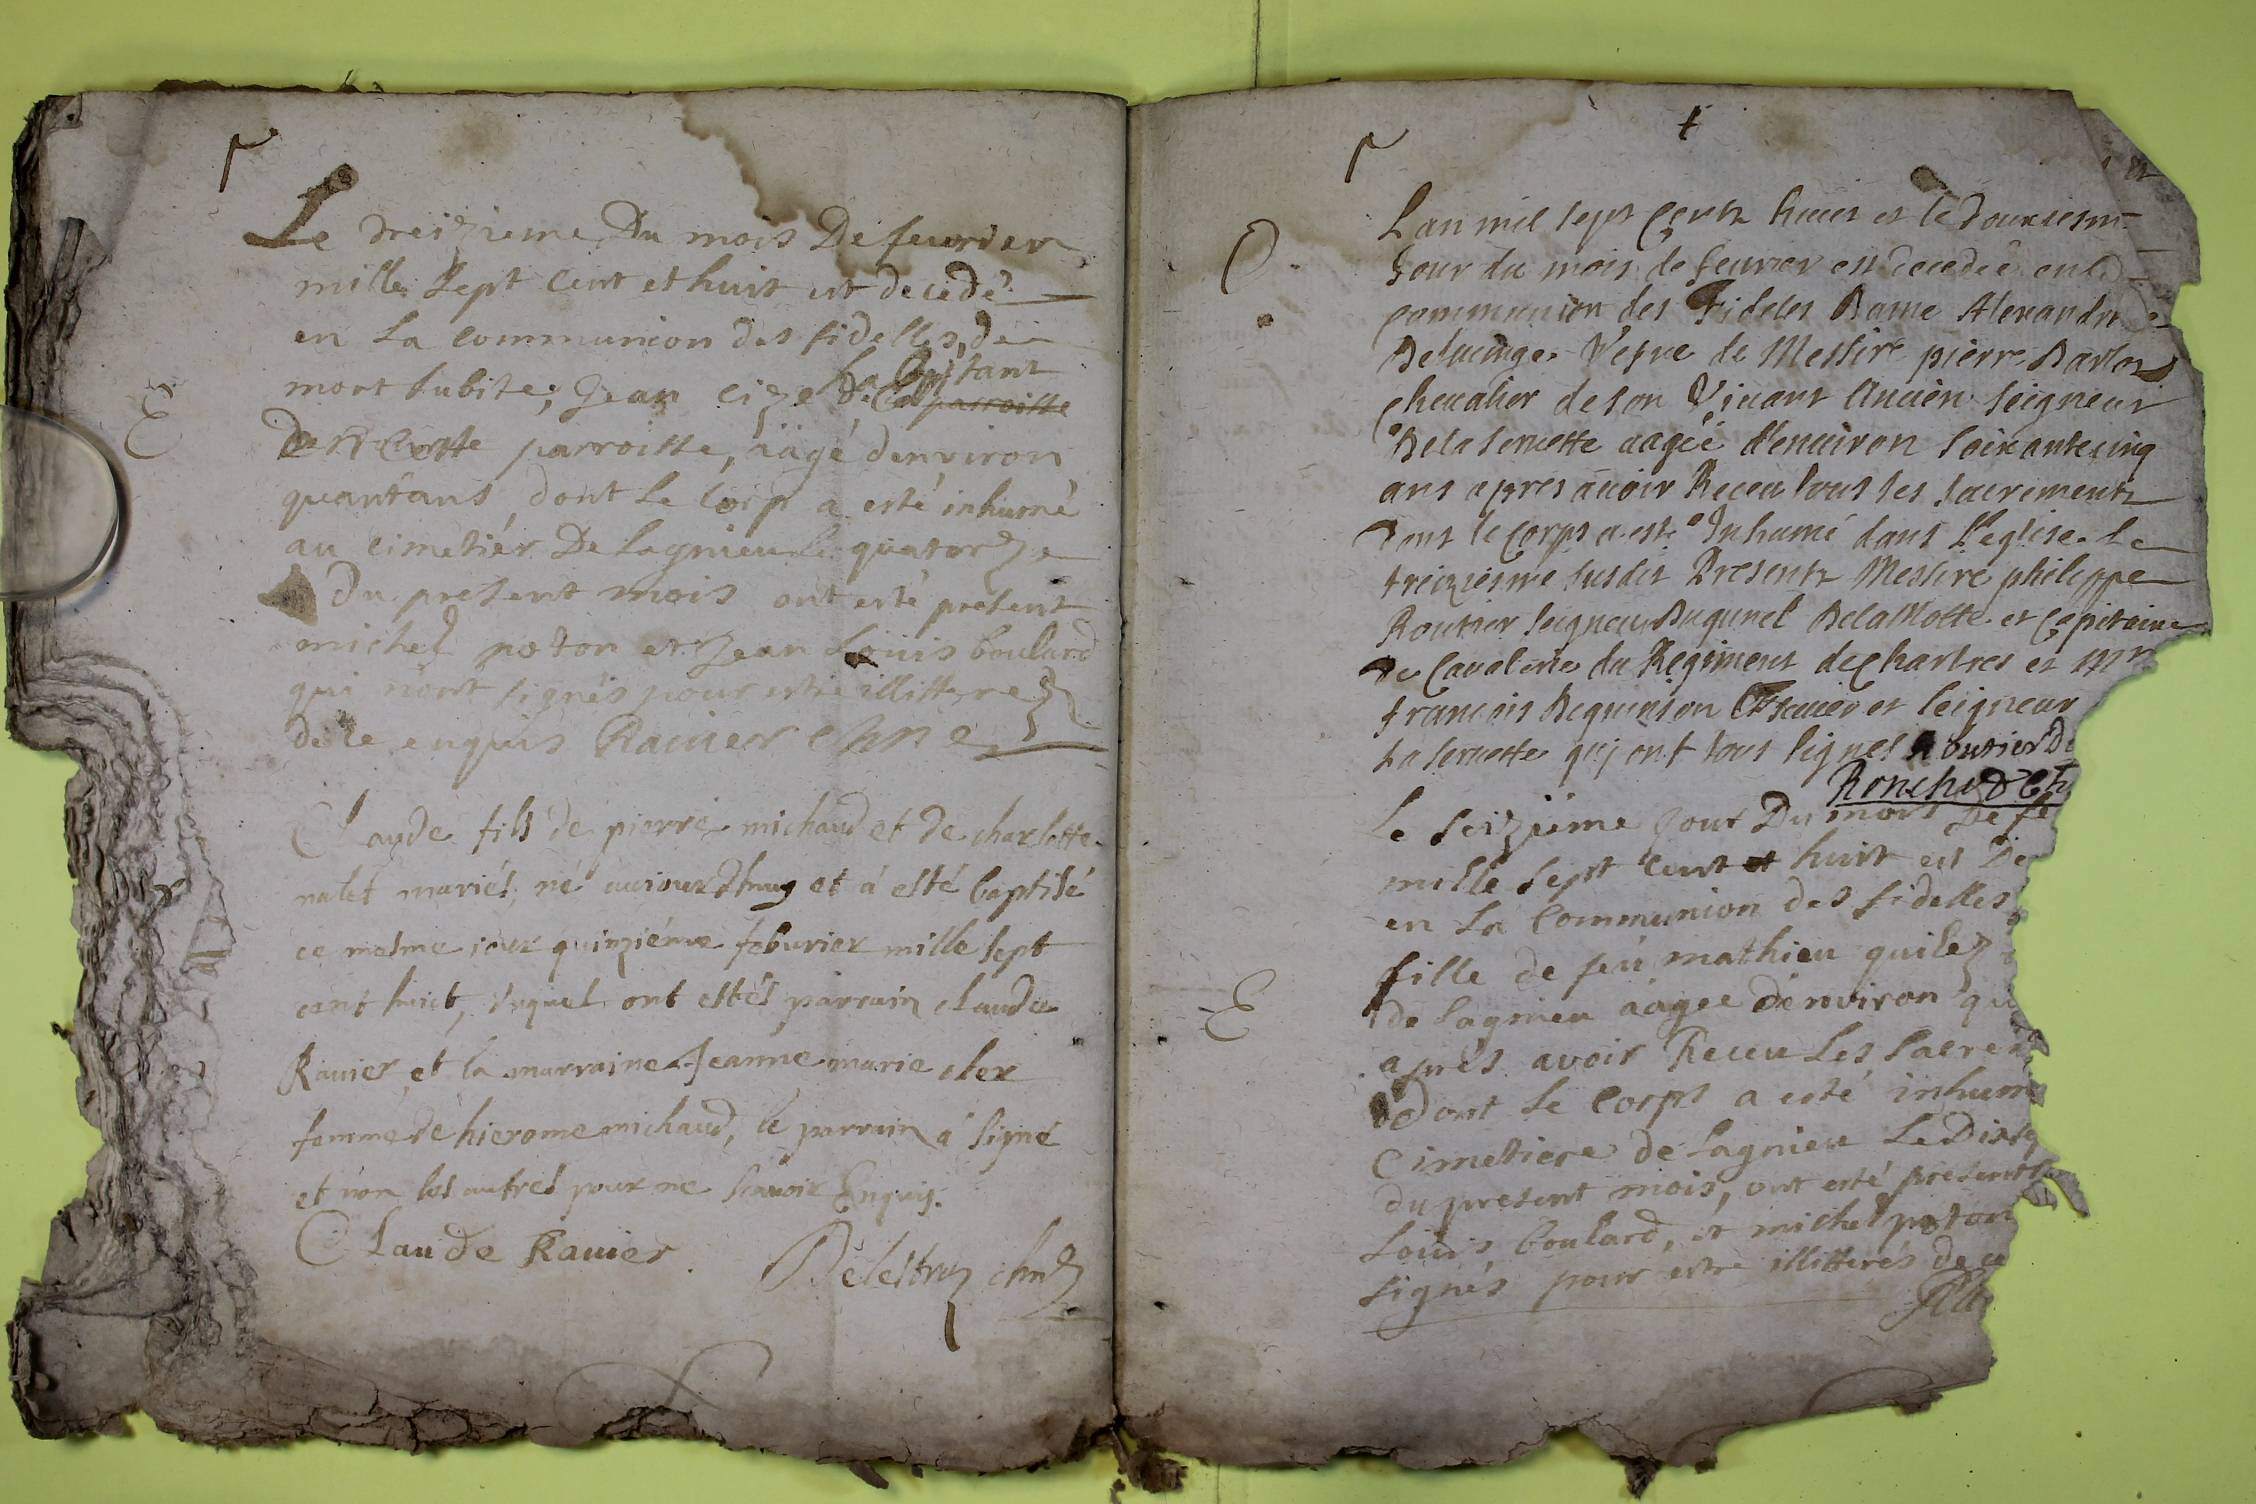 Le treizieme Du mois De feuvrier
mille sept cent et huit est decedé
en La communion des fidelles, de
mort subite; Jean cize habitant
De parroisse, aagé denviron
quarant'ans, dont Le corp a esté inhumé
au cimetiér De Lagnieu Le quatorze
Du present mois ont esté present
michel poton et Jean Loüis boulard
qui n'ont signés pour estre illittere
de ce enquis Rauier
Claude fils de pierre michaud et de charlotte
nalet mariés, né aujourdhuy et á esté baptisé
ce mesme iour quinziéme feburier mille sept
cent huict, duquel ont estés parrain claude
Rauier et la marraine Jeanne marie cler
femme de hierome michaud, le parrain a signé
et non les autres pour ne scauoir Enquis.
Claude Rauier. Delestraz
Lan mil sept Centz huict et le douziesm
Jour du mois de feurier est decedeé en la
communion des Fideles Dame Alexandr
Vefue de Messire pierre
cheualier de son Viuant Ancien seigneur
De la seruette aageé d'enuiron soixante cinq
ans apres auoir Receu tous ses sacrementz
dont le Corps a esté Inhumé dans L'eglise le
treiziesme susdit Presentz Messire philippe
Routier seigneur De la Motte et Capitaine
de Caualerie du Regiment de Chartres et Mr
francois Escuier et seigneur
La seruette quj ont tous signes Routier De
Le seizïéme Jour Du mois De fe
mille sept cent et huit est De
en La Communion des fidelles
fille de feû mathieu quilez
de Lagnieu aagee d'environ qu
aprés avoir Receu Les sacrem
Dont Le Corps a esté inhum
Cimetiere de Lagnieu Le Dix
du present mois, ont esté present
Loüis boulard, et michel poton
signés pour estre illitterés de ce